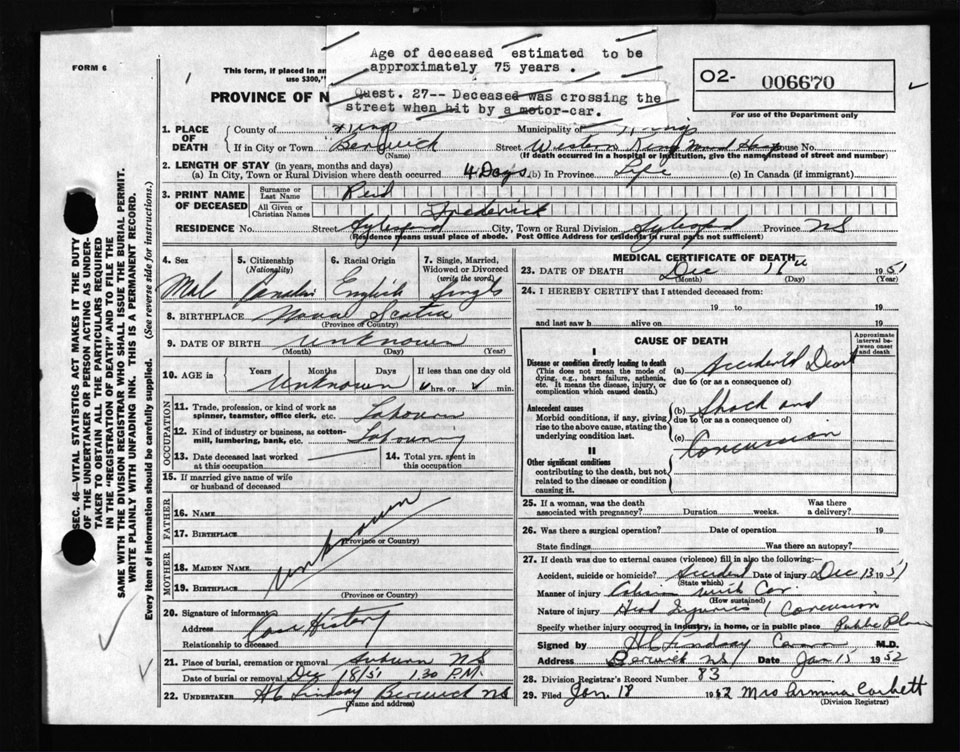 Age of deceased estimated to be
approximately 75 years.
Quest. 27-- Deceased was crossing the
street when hit by a motor-car.
FORM 6
This form, if placed in an
use $300,"
PROVINCE OF N
O2- 006670
For use of the Department only
1. PLACE OF DEATH
County of Kings Municipality of Kings
If in City or Town Berwick Street Western Kings Hosp House No.
(Name) (If death occurred in a hospital or institution, give the name instead of street and number)
2. LENGTH OF STAY (in years, months and days)
(a) In City, Town or Rural Division where death occurred 4 Days (b) In Province Life (c) In Canada (if immigrant)
3. PRINT NAME OF DECEASED
Surname or Last Name Reid
All Given or Christian Names Frederick
RESIDENCE No. Street Aylesford City, Town or Rural Division Aylesford Province NS
(Residence means usual place of abode. Post Office Address for residents in rural parts not sufficient)
4. Sex
Male
5. Citizenship (Nationality)
Canadian
6. Racial Origin
English
7. Single, Married, Widowed or Divorced (write the word)
Single
8. BIRTHPLACE Nova Scotia
(Province or Country)
9. DATE OF BIRTH Unknown
(Month) (Day) (Year)
10. AGE in Years Months Days If less than one day old
Unknown hrs. or min.
OCCUPATION
11. Trade, profession, or kind of work as
spinner, teamster, office clerk, etc. Labourer
12. Kind of industry or business, as cotton-
mill, lumbering, bank, etc. Labouring
13. Date deceased last worked
at this occupation
14. Total yrs. spent in
this occupation
15. If married give name of wife
or husband of deceased
FATHER
16. NAME
17. BIRTHPLACE
(Province or Country)
unknown
MOTHER
18. MAIDEN NAME
19. BIRTHPLACE
(Province or Country)
20. Signature of informant
Address Case History
Relationship to deceased
21. Place of burial, cremation or removal Auburn NS
Date of burial or removal Dec 18/51 1.30 P.M.
22. UNDERTAKER HC Lindsay Berwick NS
(Name and address)
MEDICAL CERTIFICATE OF DEATH
23. DATE OF DEATH Dec 16th 1951
(Month) (Day) (Year)
24. I HEREBY CERTIFY that I attended deceased from:
19 to 19
and last saw h alive on 19
CAUSE OF DEATH
Approximate interval between onset and death
I
Disease or condition directly leading to death
(This does not mean the mode of
dying, e.g., heart failure, asthenia,
etc. It means the disease, injury, or
complication which caused death.)
(a) Accidental Death
due to (or as a consequence of)
Antecedent causes
Morbid conditions, if any, giving
rise to the above cause, stating the
underlying condition last.
(b) Shock and
due to (or as a consequence of)
(c) Concussion
II
Other significant conditions
contributing to the death, but not
related to the disease or condition
causing it.
25. If a woman, was the death Was there
associated with pregnancy? Duration weeks. a delivery?
26. Was there a surgical operation? Date of operation 19
State findings Was there an autopsy?
27. If death was due to external causes (violence) fill in also the following:
Accident, suicide or homicide? Accident Date of injury Dec 13 1951
(State which)
Manner of injury with Car
(How sustained)
Nature of injury Head Injuries Concussion
Specify whether injury occurred in industry, in home, or in public place Public Place
Signed by HC Lindsay M.D.
Address Berwick NS Date Jan 15 1952
28. Division Registrar's Record Number 83
29. Filed Jan. 18 1952 Mrs Armina Corbett
(Division Registrar)
SEC. 46—VITAL STATISTICS ACT MAKES IT THE DUTY
OF THE UNDERTAKER OR PERSON ACTING AS UNDER-
TAKER TO OBTAIN ALL THE PARTICULARS REQUIRED
IN THE "REGISTRATION OF DEATH" AND TO FILE THE
SAME WITH THE DIVISION REGISTRAR WHO SHALL ISSUE THE BURIAL PERMIT.
WRITE PLAINLY WITH UNFADING INK. THIS IS A PERMANENT RECORD.
Every item of information should be carefully supplied. (See reverse side for instructions.)